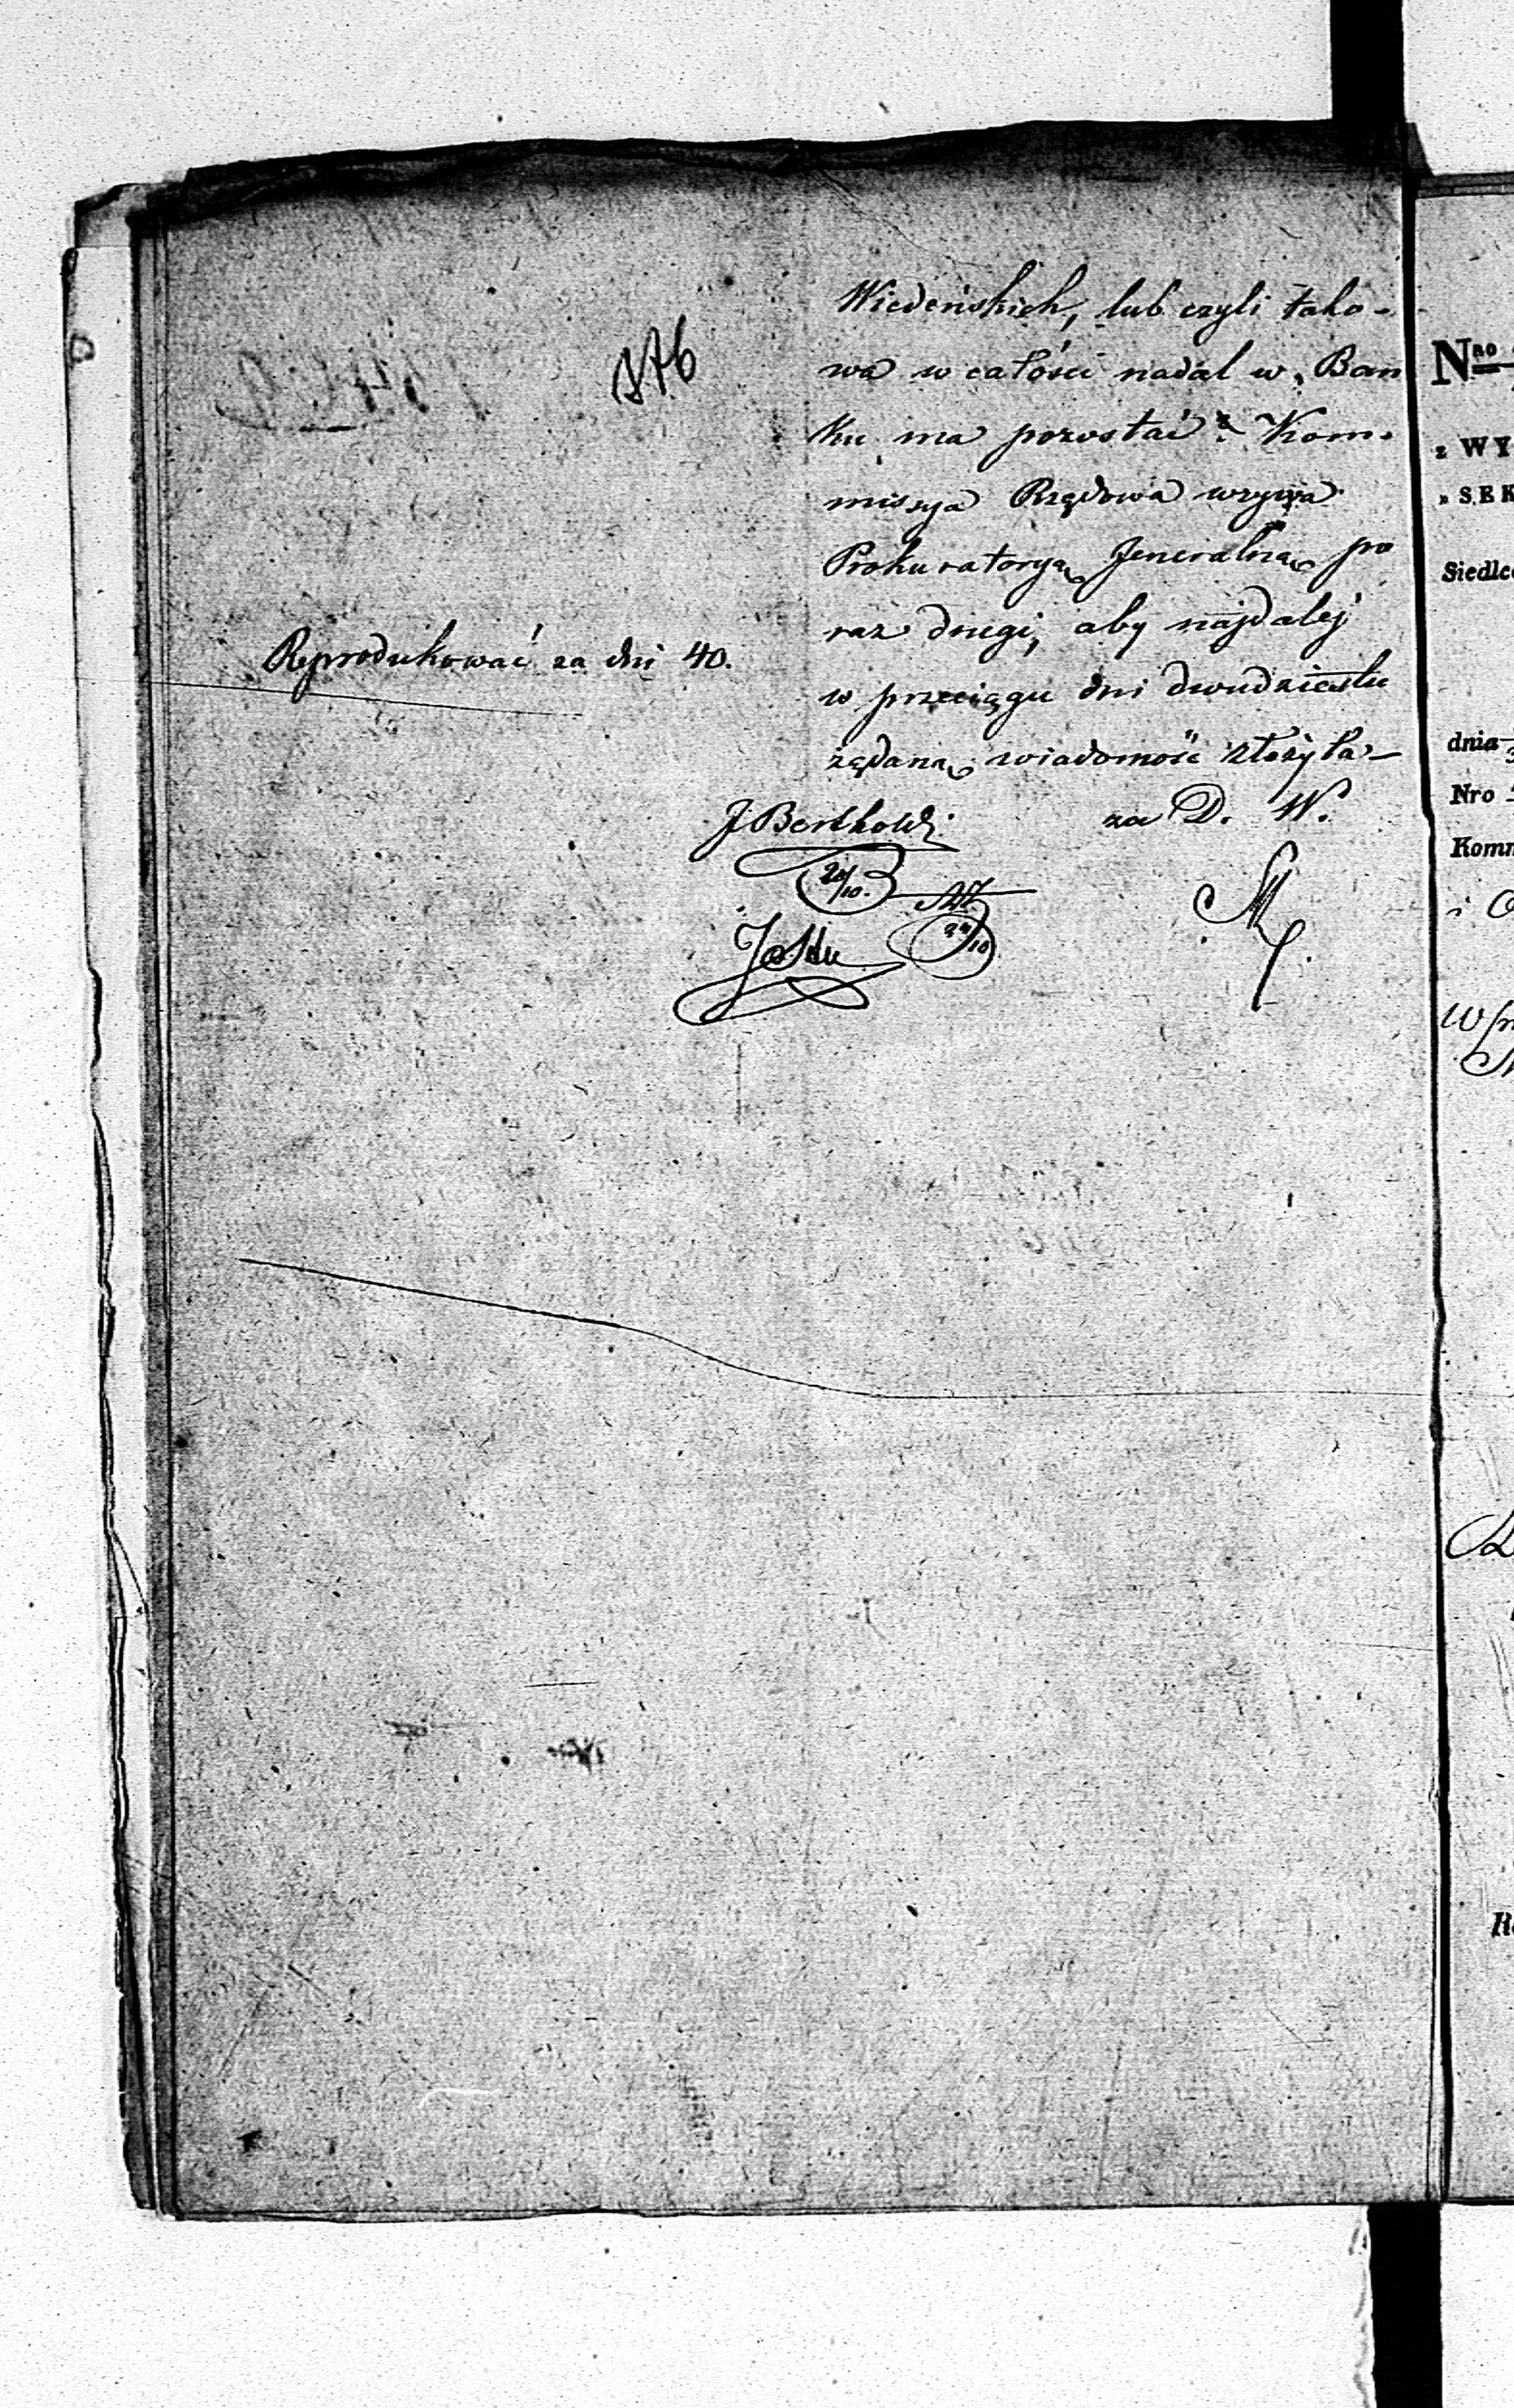 376
Wiedeńskich, lub czyli tako-
wa w całości nadal w Ban
ku ma pozostać? Kom-
missya Rządowa wzywa
Prokuratoryą Jeneralną po
raz drugi, aby najdalej
w przeciągu dni dwudziestu
żądaną wiadomość złożyła
Reprodukować za dni 40.
za D. W.
24/10.
24/10
Nro
z WY
» SEK
Siedlce
dnia
Nro
Komm
i O